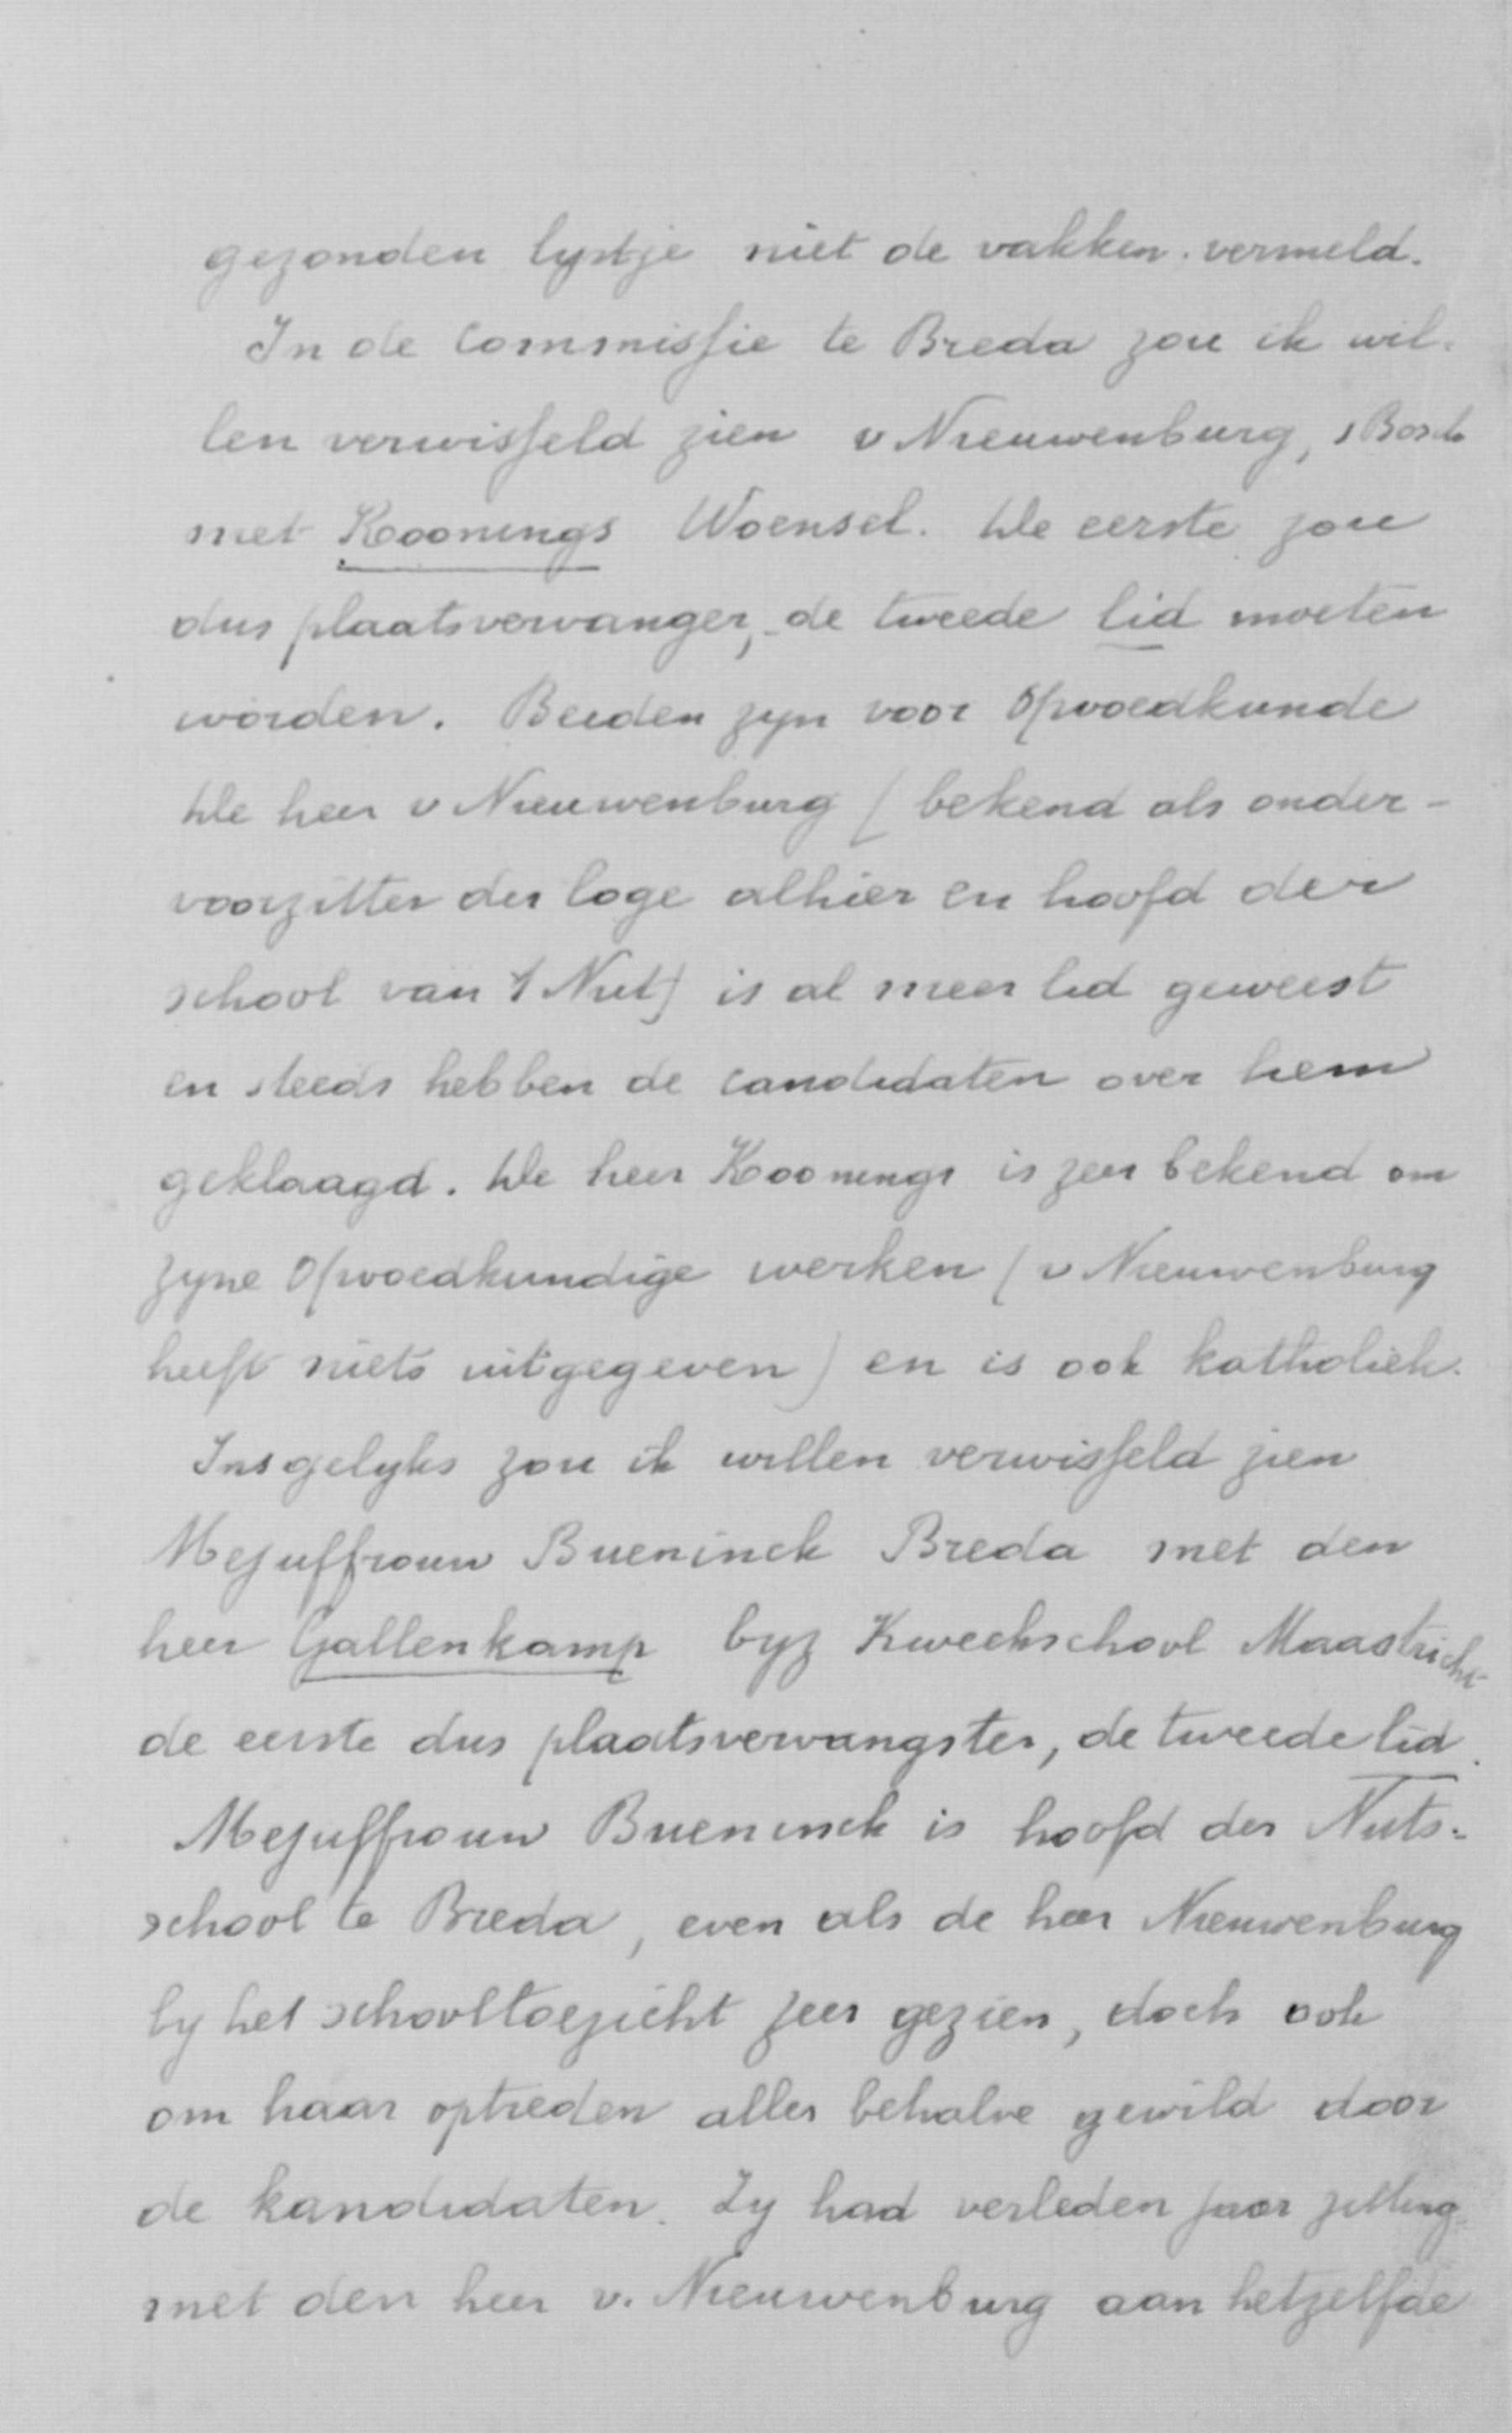 gezonden lystje niet de vakken vermeld.
In de Commissie te Breda zou ik wil-
len verwisseld zien v Nieuwenburg, sBosch
met Koonings Woensel. De eerste zou
dus plaatsvervanger, de tweede lid moeten
worden. Beiden zyn voor Opvoedkunde
De heer v Nieuwenburg (bekend als onder-
voorzitter der loge alhier en hoofd der
school van 't Nut) is al meer lid geweest
en steeds hebben de candidaten over hem
geklaagd. De heer Koonings is zeer bekend om
zyne Opvoedkundige werken (v Nieuwenburg
heeft niets uitgegeven) en is ook katholiek.
Insgelyks zou ik willen verwisseld zien
Mejuffrouw Bueninck Breda met den
heer Gallenkamp byz Kweekschool Maastricht
de eerste dus plaatsvervangster, de tweede lid.
Mejuffrouw Bueninck is hoofd der Nuts-
school te Breda, even als de heer Nieuwenburg
by het schooltoezicht zeer gezien, doch ook
om haar optreden alles behalve gewild door
de kandidaten. Zy had verleden jaar zitting
met den heer v. Nieuwenburg aan hetzelfde